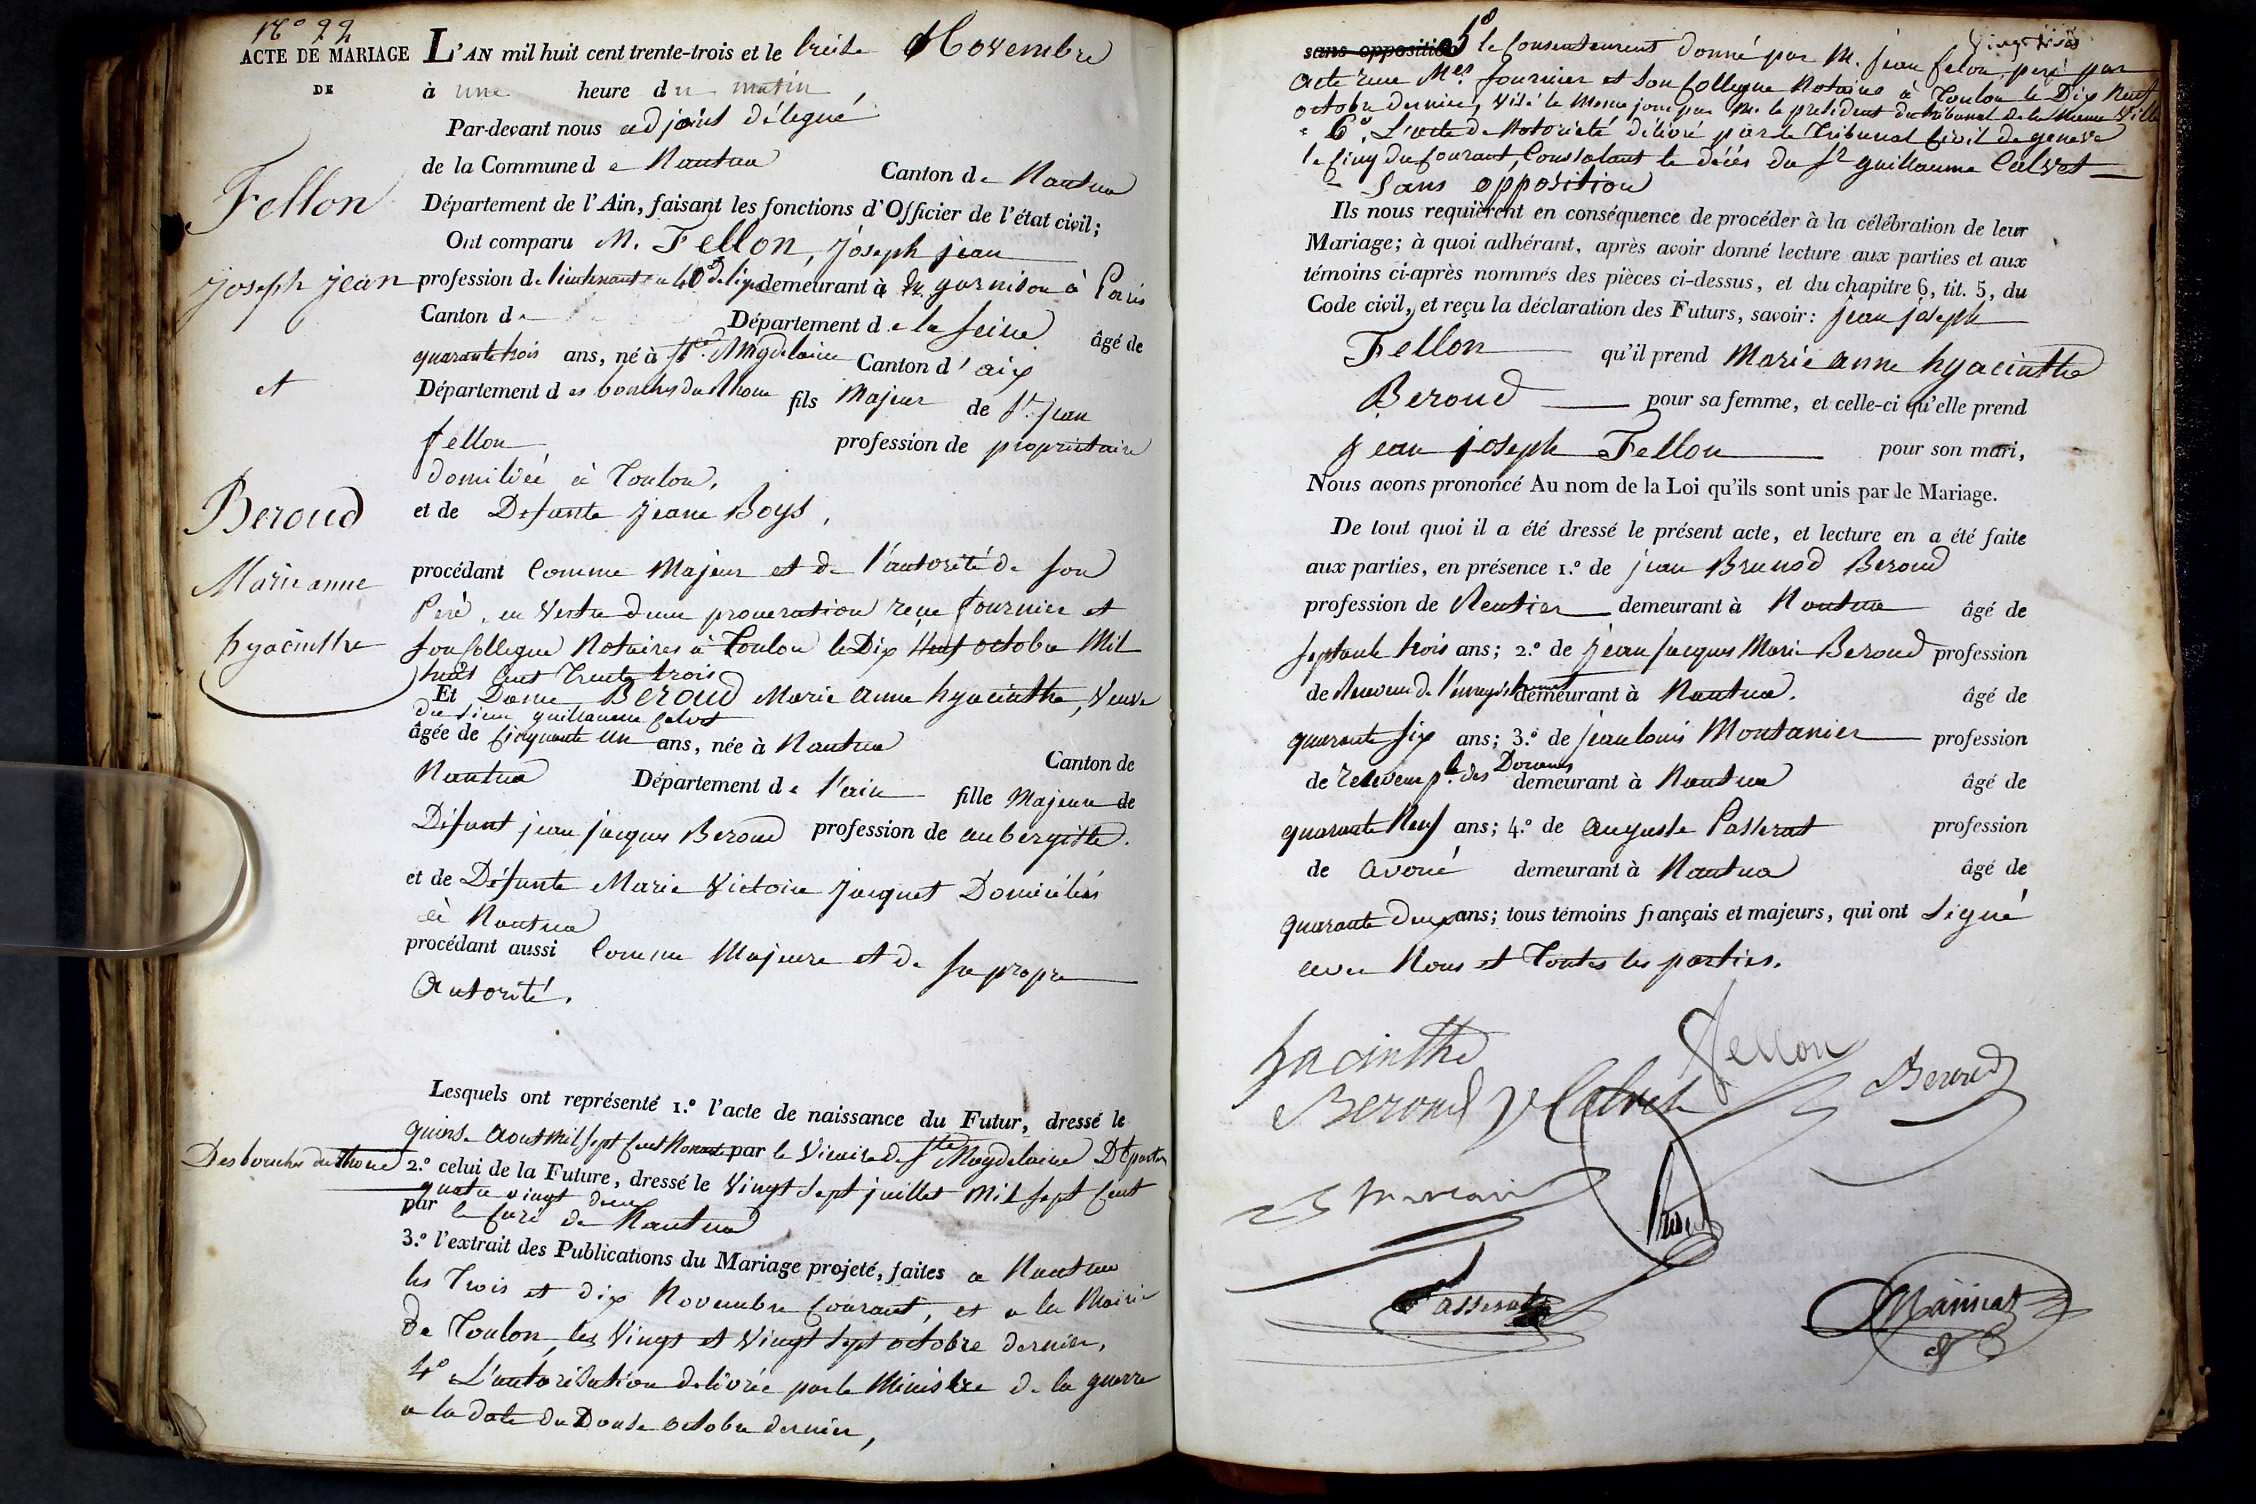 N° 22
ACTE DE MARIAGE
DE
Fellon
Joseph jean
et
Beroud
Marie anne
hyacinthe
L'AN mil huit cent trente-trois et le treize Novembre
à une heure du matin
Par-devant nous adjoint délégué
de la Commune de Nantua Canton de Nantua
Département de l'Ain, faisant les fonctions d'Officier de l'état civil;
Ont comparu M. Fellon, Joseph jean
profession de lieutenant au 40e de ligne demeurant à En garnison à Paris
Canton de Département de la Seine âgé de
quarante trois ans, né à Ste Magdelaine Canton d'aix
Département des bouches du Rhone fils Majeur de Sr. jean
fellon profession de propriétaire
domicilié à Toulon,
et de Defunte Jeane Boys,
procédant Comme Majeur et de l'autorité de son
Peré, en Vertu d'une procuration reçue fournier et
son Collegue Notaires à Toulon le Dix Neuf octobre Mil
huit Cent Trente trois
Et Dame Beroud Marie anne hyacinthe, Veuve
du Sieur guillaume Calvet
âgée de Cinquante un ans, née à Nantua Canton de
Nantua Département de l'ain fille Majeure de
Defunt jean jacques Beroud profession de aubergiste.
et de Défunte Marie Victoire Jacquet Domiciliés
à Nantua
procédant aussi Comme Majeure et de sa propre
Autorité.
Lesquels ont représenté 1.° l'acte de naissance du Futur, dressé le
quinze Aout Mil Sept Cent Nonante par le Vicaire de Ste Magdelaine Départ
Des bouches du Rhone
2.° celui de la Future, dressé le Vingt Sept juillet Mil Sept Cent
quatre vingt deux
par le Curé de Nantua
3.° l'extrait des Publications du Mariage projeté, faites a Nantua
les Trois et dix Novembre Courant, et a la Mairie
de Toulon, les Vingt et Vingt Sept octobre dernier,
4° L'autorisation délivrée par le Ministre de la guerre
a la date du Douze octobre dernier,
sans opposition 5° le Consentement donné par M. jean fellon, peré par
Acte reçu Mes. fournier et son Collegue Notaires à Toulon le Dix Neuf
octobre dernier, Visé le Meme jour par Mr. le président du tribunal de la Meme Ville
6°. L'acte de Notorieté délivré par le Tribunal Civil de geneve
le Cinq du Courant, Constatant le décés du Sr guillaume Calvet
Sans opposition
Ils nous requièrent en conséquence de procéder à la célébration de leur
Mariage; à quoi adhérant, après avoir donné lecture aux parties et aux
témoins ci-après nommés des pièces ci-dessus, et du chapitre 6, tit. 5, du
Code civil, et reçu la déclaration des Futurs, savoir: jean joseph
Fellon qu'il prend Marie anne hyacinthe
Beroud pour sa femme, et celle-ci qu'elle prend
Jean joseph Fellon pour son mari,
Nous avons prononcé Au nom de la Loi qu'ils sont unis par le Mariage.
De tout quoi il a été dressé le présent acte, et lecture en a été faite
aux parties, en présence 1.° de jean Brunod Beroud
profession de Rentier demeurant à Nantua âgé de
septante trois ans; 2.° de Jean Jacques Marie Beroud profession
de Receveur de l'enregistrement demeurant à Nantua. âgé de
quarante six ans; 3.° de Jean louis Montanier profession
de receveur pl. des Douanes demeurant à Nantua âgé de
quarante Neuf ans; 4.° de Auguste Passerat profession
de Avoué demeurant à Nantua âgé de
quarante deux ans; tous témoins français et majeurs, qui ont Signé
avec Nous et Toutes les parties.
hacinthe
Beroud Ve Calvet
Fellon
Beroud
Passerat